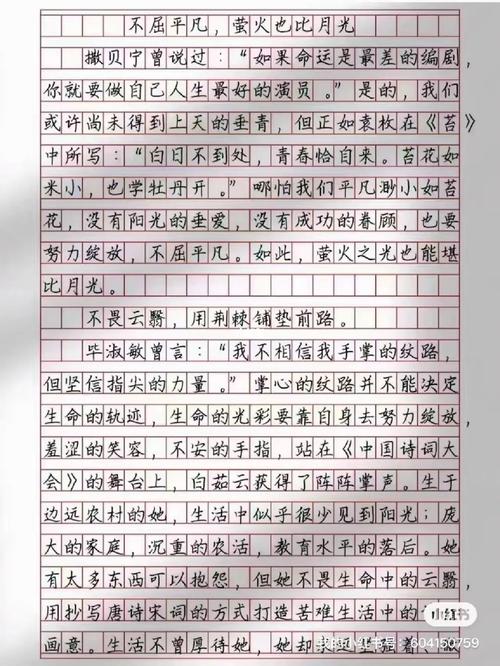 不屈平凡，萤火也比月光
撒贝宁曾说过：“如果命运是最差的编剧，
你就要做自己人生最好的演员。”是的，我们
或许尚未得到上天的垂青，但正如袁枚在《苔》
中所写：“白日不到处，青春恰自来。苔花如
米小，也学牡丹开。”哪怕我们平凡渺小如苔
花，没有阳光的垂爱，没有成功的眷顾，也要
努力绽放，不屈平凡。如此，萤火之光也能堪
比月光。
不畏云翳，用荆棘铺垫前路。
毕淑敏曾言：“我不相信我手掌的纹路，
但坚信指尖的力量。”掌心的纹路并不能决定
生命的轨迹，生命的光彩要靠自身去努力绽放，
羞涩的笑容，不安的手指，站在《中国诗词大
会》的舞台上，白茹云获得了阵阵掌声。生于
边远农村的她，生活中似乎很少见到阳光；庞
大的家庭，沉重的农活，教育水平的落后。她
有太多东西可以抱怨，但她不畏生命中的云翳，
用抄写唐诗宋词的方式打造苦难生活中的
小红书
画意。生活不曾厚待她，她却
小红书号：604150759